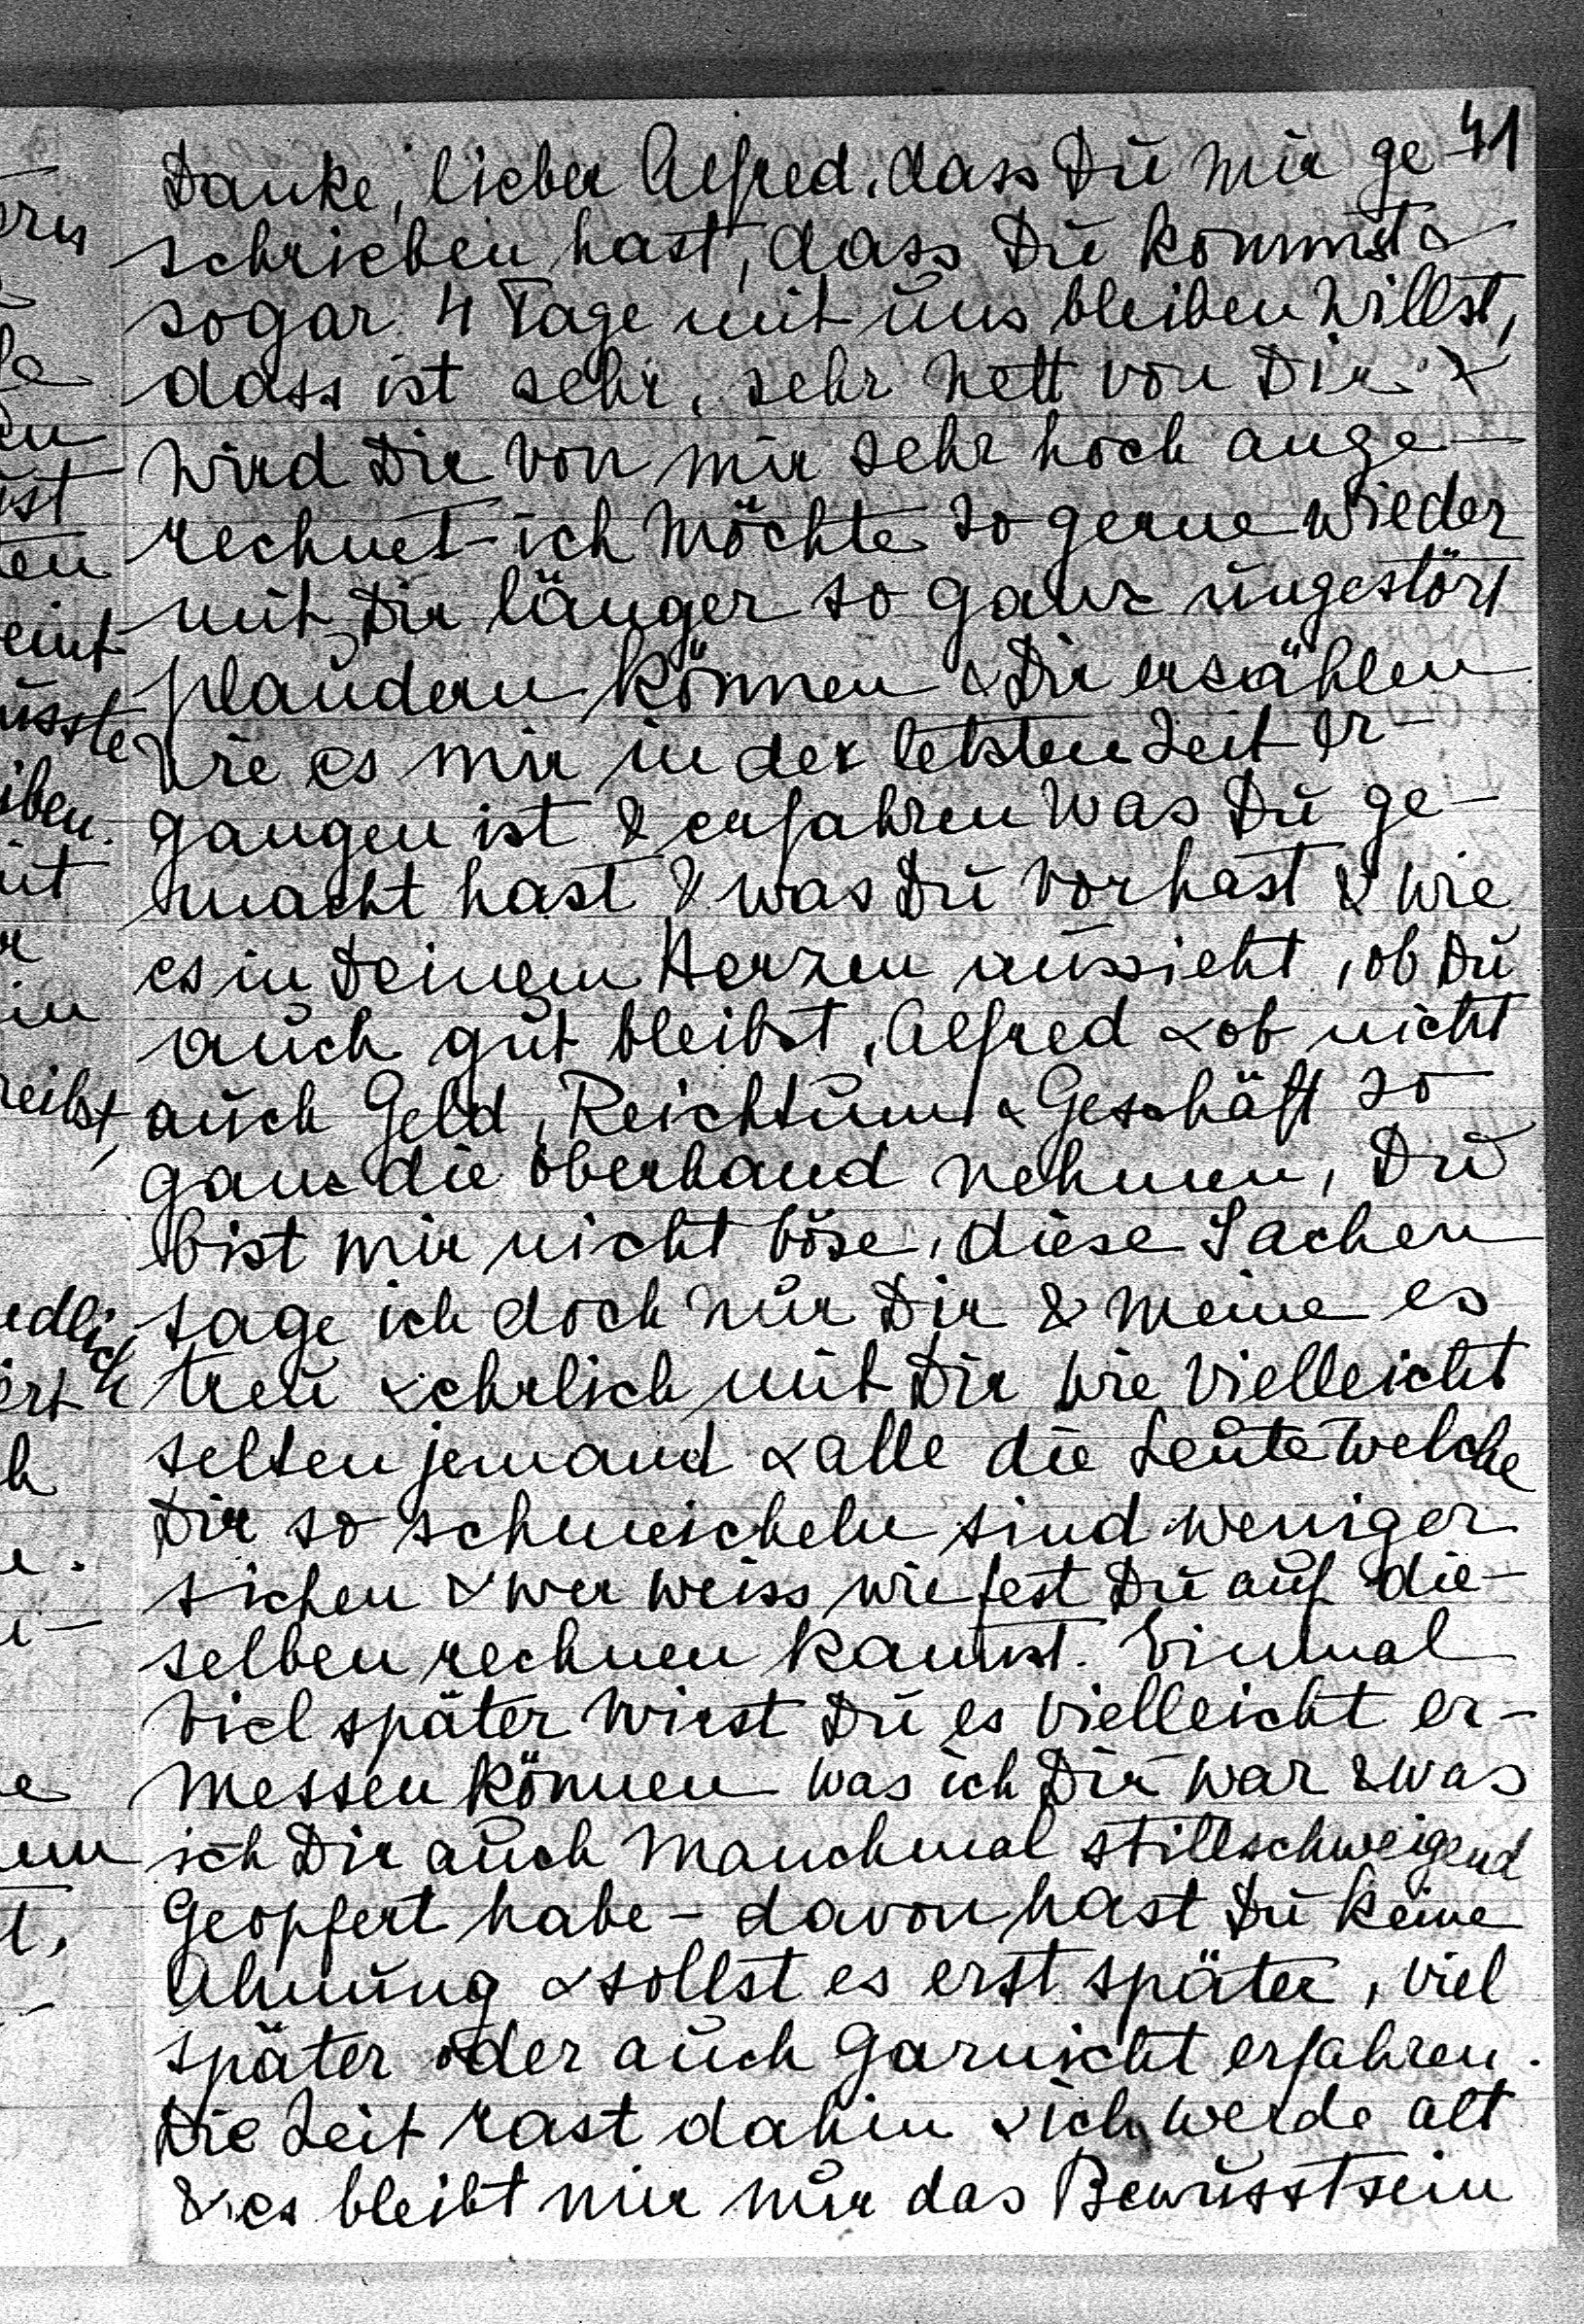 41
Danke, lieber Alfred, dass Du mir ge-
schrieben hast, dass Du kommst &
sogar 4 Tage mit uns bleiben willst,
dass ist sehr, sehr nett von Dir &
wird Dir von mir sehr hoch ange-
rechnet - ich möchte so gerne wieder
mit Dir länger so ganz ungestört
plaudern können & Dir erzählen
wie es mir in der letzten Zeit er-
gangen ist & erfahren was Du ge-
macht hast & was Du vorhast & wie
es in Deinem Herzen aussieht, ob Du
auch gut bleibst, Alfred & ob nicht
auch Geld, Reichtum & Geschäft so
ganz die Oberhand nehmen, Du
bist mir nicht böse, diese Sachen
sage ich doch nur Dir & meine es
treu & ehrlich mit Dir wie vielleicht
selten jemand & alle die Leute welche
Dir so schmeicheln sind weniger
sicher & wer weiss wie fest Du auf die-
selben rechnen kannst. Einmal
viel später wirst Du es vielleicht er-
messen können was ich Dir war & was
ich Dir auch manchmal stillschweigend
Geopfert habe - davon hast Du keine
Ahnung & sollst es erst später, viel
später oder auch garnicht erfahren.
Die Zeit rast dahin & ich werde alt
& es bleibt mir nur das Bewusstsein